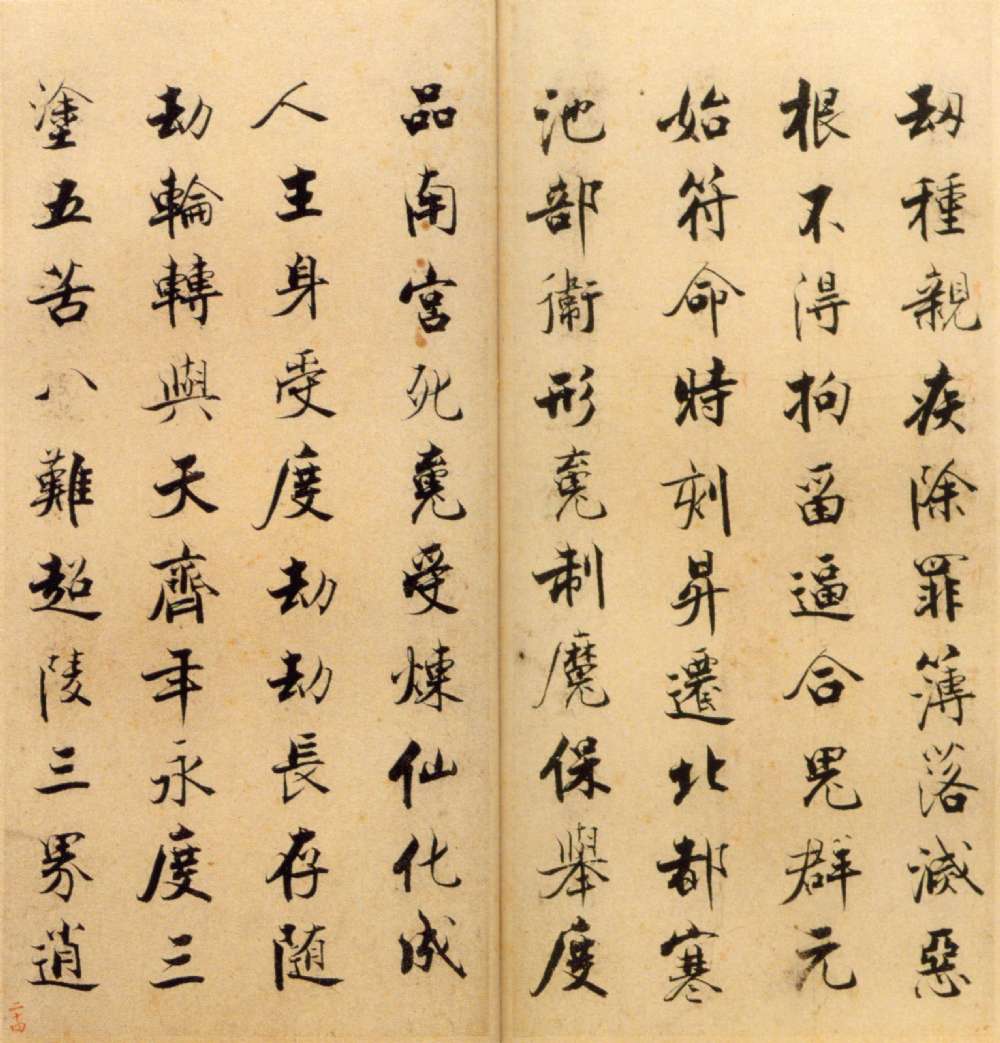 劫種親疾除罪簿落滅惡
根不得拘留逼合鬼群元
始符命時刻昇遷北都寒
池部衛形魂制魔保舉度
品南宮死魂受煉仙化成
人主身受度劫劫長存隨
劫輪轉與天齊年永度三
塗五苦八難超陵三界逍
二十四